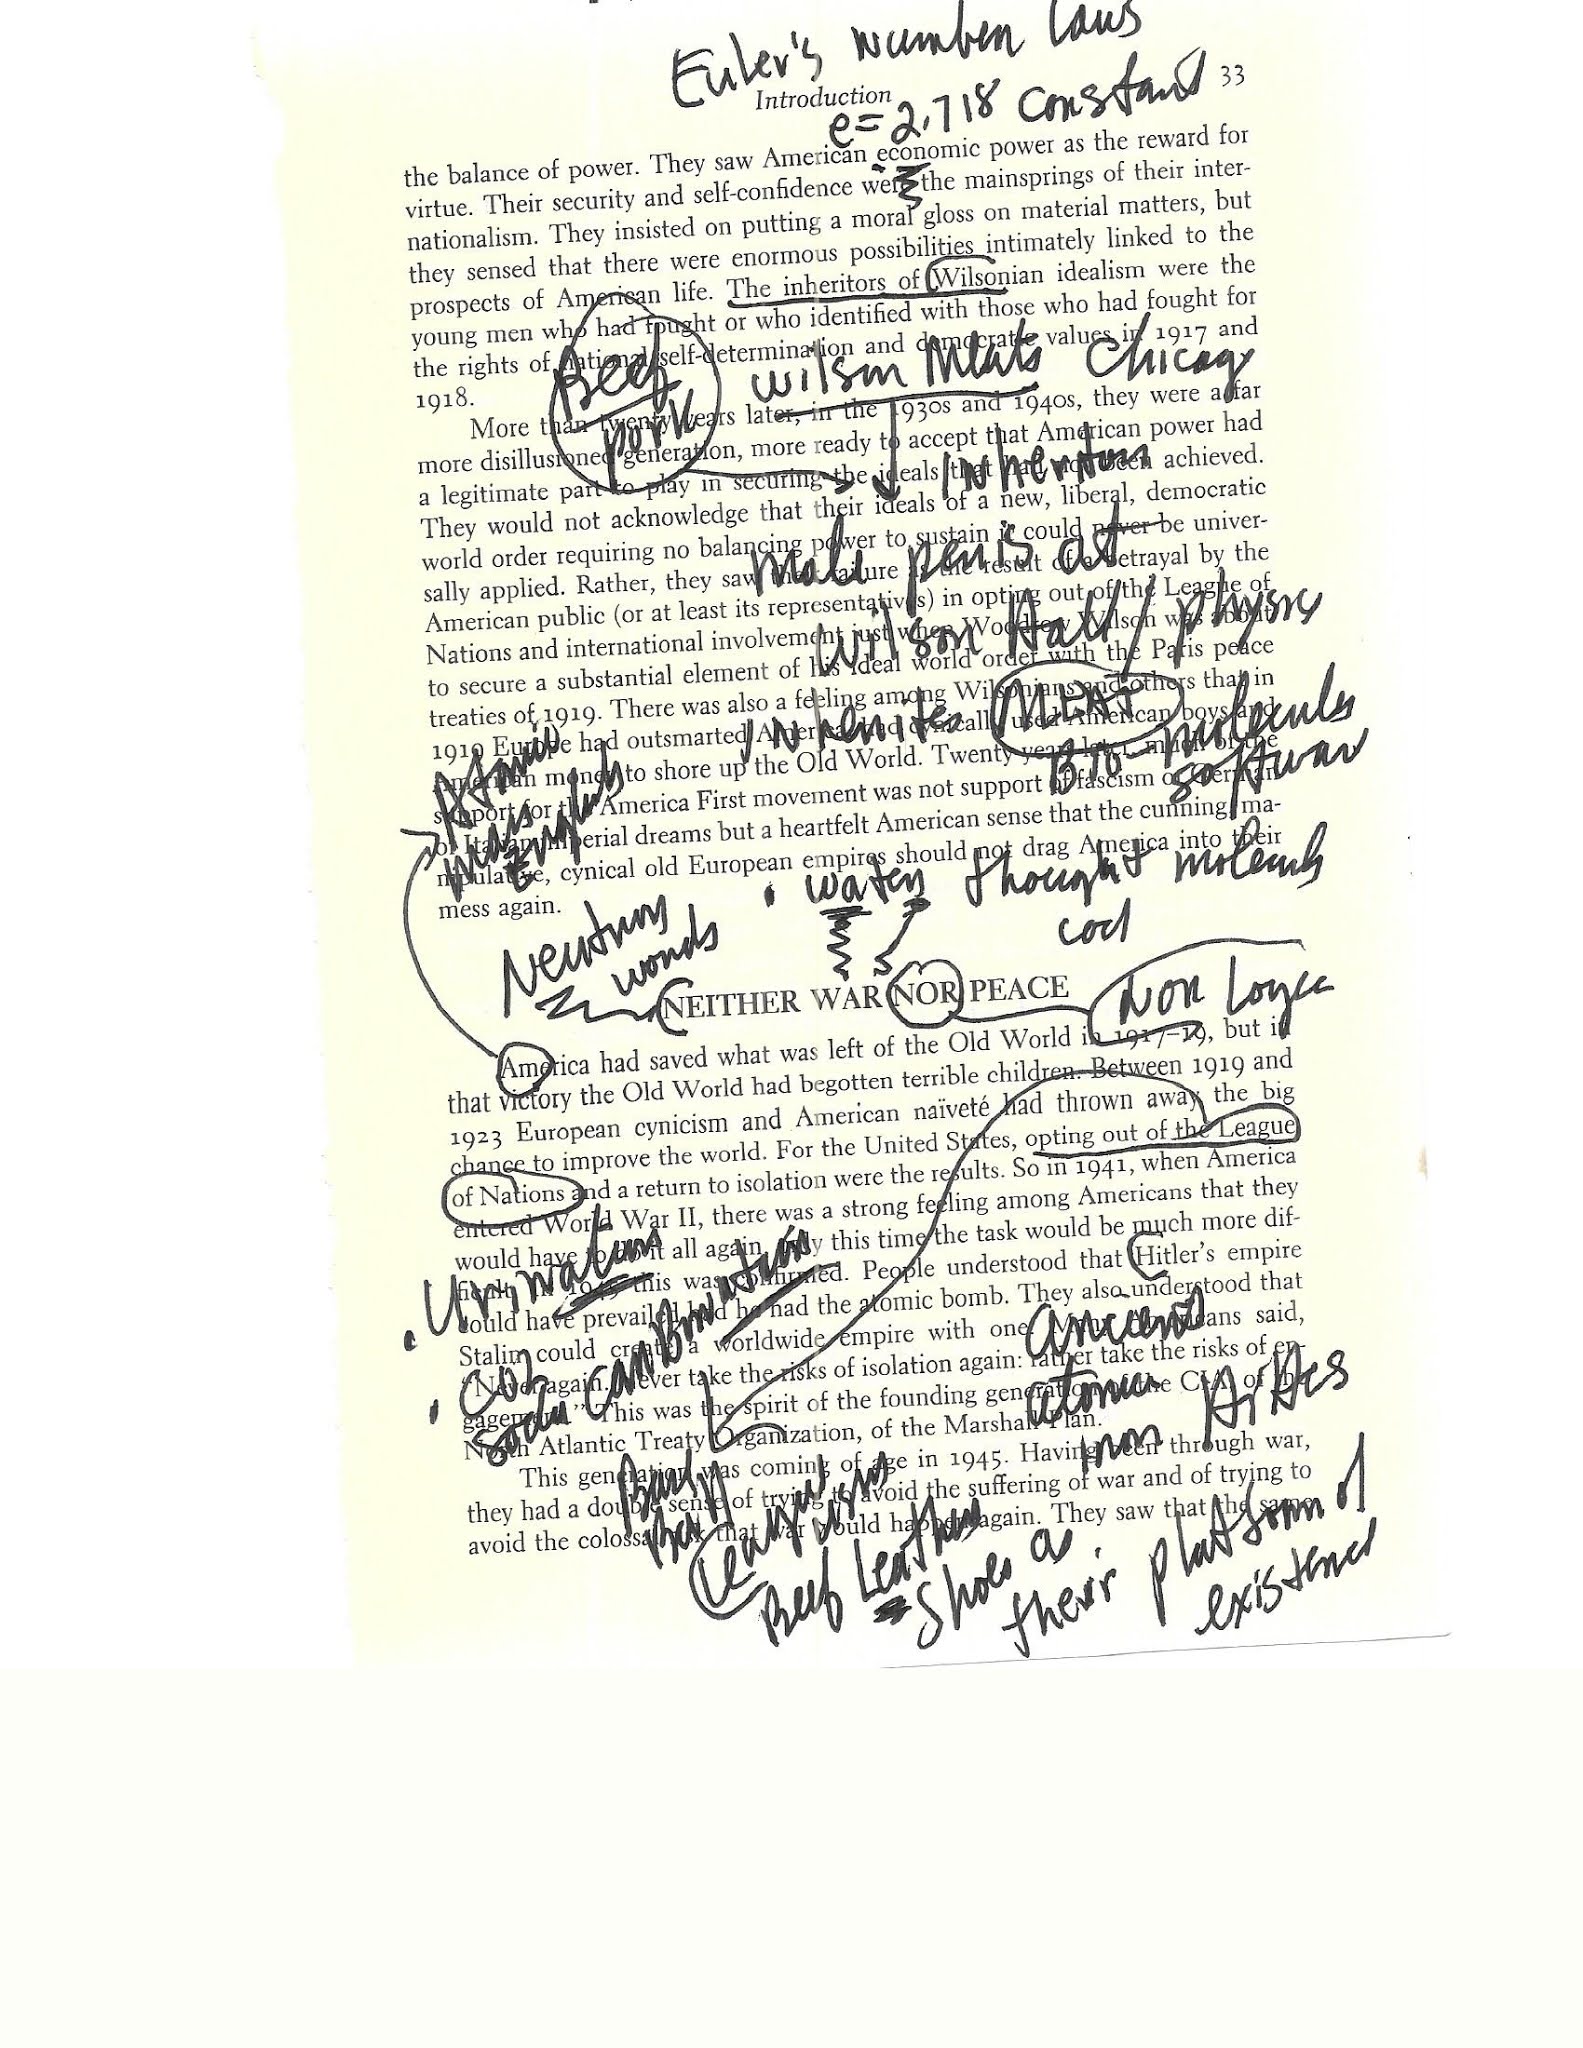 Euler's number laws
Introduction 33
e=2.718 constant
the balance of power. They saw American economic power as the reward for
virtue. Their security and self-confidence were the mainsprings of their inter-
nationalism. They insisted on putting a moral gloss on material matters, but
they sensed that there were enormous possibilities intimately linked to the
prospects of American life. The inheritors of Wilsonian idealism were the
young men who had fought or who identified with those who had fought for
the rights of national self-determination and democratic values in 1917 and
Beef wilson Meats Chicago
1918.
More than twenty years later, in the 1930s and 1940s, they were a far
pork
more disillusioned generation, more ready to accept that American power had
inheritors
a legitimate part to play in securing the ideals that had not been achieved.
They would not acknowledge that their ideals of a new, liberal, democratic
world order requiring no balancing power to sustain it could never be univer-
male penis at
sally applied. Rather, they saw their failure as the result of a betrayal by the
American public (or at least its representatives) in opting out of the League of
wilson Hall physics
Nations and international involvement just when Woodrow Wilson was about
to secure a substantial element of his ideal world order with the Paris peace
treaties of 1919. There was also a feeling among Wilsonians and others that in
inherites MEAT
1919 Europe had outsmarted America, had cynically used American boys and
Bio-molecules
American money to shore up the Old World. Twenty years later, much of the
softwar
Atomic
support for the America First movement was not support of fascism or German
mass
or Italian imperial dreams but a heartfelt American sense that the cunning, ma-
English
nipulative, cynical old European empires should not drag America into their
mess again.
water thought molecul
cod
Neutrons
words
NEITHER WAR NOR PEACE
Nor Logic
America had saved what was left of the Old World in 1917–19, but in
that victory the Old World had begotten terrible children. Between 1919 and
1923 European cynicism and American naïveté had thrown away the big
chance to improve the world. For the United States, opting out of the League
of Nations and a return to isolation were the results. So in 1941, when America
entered World War II, there was a strong feeling among Americans that they
would have to do it all again, only this time the task would be much more dif-
ficult. In 1945 this was confirmed. People understood that Hitler's empire
could have prevailed had he had the atomic bomb. They also understood that
Stalin could create a worldwide empire with one. Many Americans said,
"Never again. Never take the risks of isolation again: rather take the risks of en-
gagement." This was the spirit of the founding generation of the CIA, of the
North Atlantic Treaty Organization, of the Marshall Plan.
CO2
soda
atomic
iron
This generation was coming of age in 1945. Having been through war,
they had a double sense of trying to avoid the suffering of war and of trying to
avoid the colossal risk that war would happen again. They saw that the same
Beef Leather
Shoes as
their platform of
existence